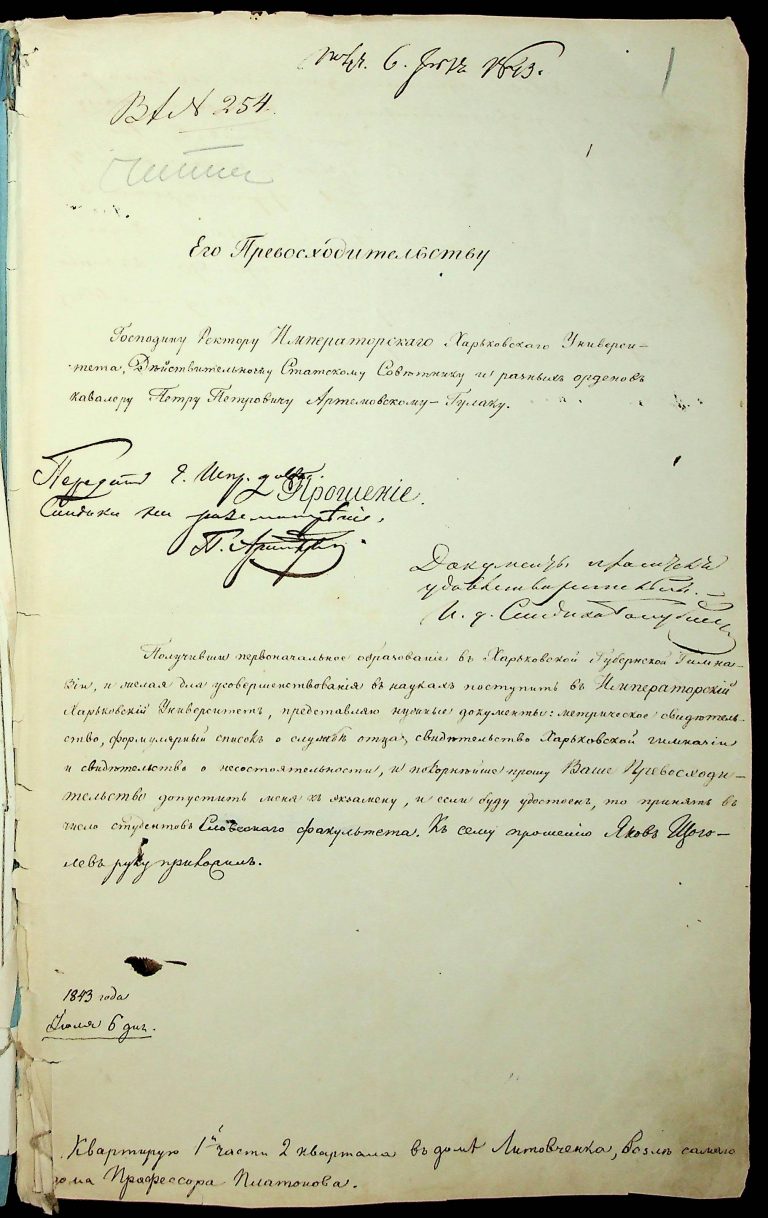 6. 1843.
№ 254.
Его Превосходительству
Господину Ректору Императорскаго Харьковскаго Универси-
тета, Дѣйствительному Статскому Совѣтнику и разныхъ орденовъ
кавалеру Петру Петровичу Артемовскому-Гулаку.
Прошеніе.
Передать г. Испр. долж.
Синдика на разсмотрѣніе.
Документы
удовлетворительны.
И. д. Синдика
Получивши первоначальное образованіе въ Харьковской Губернской Гимна-
зіи, и желая для усовершенствованія въ наукахъ поступить въ Императорскій
Харьковскій Университетъ, представляю нужные документы: метрическое свидѣтель-
ство, формулярный списокъ о службѣ отца, свидѣтельство Харьковской гимназіи
и свидѣтельство о несостоятельности, и покорнѣйше прошу Ваше Превосходи-
тельство допустить меня къ экзамену, и если буду удостоенъ, то принять въ
число студентовъ Словеснаго факультета. Къ сему прошенію Яковъ Щого-
левъ руку приложилъ.
1843 года
Іюля 6 дня.
Квартирую 1й части 2 квартала въ домѣ Литовченка, возлѣ самаго
дома Профессора Платонова.